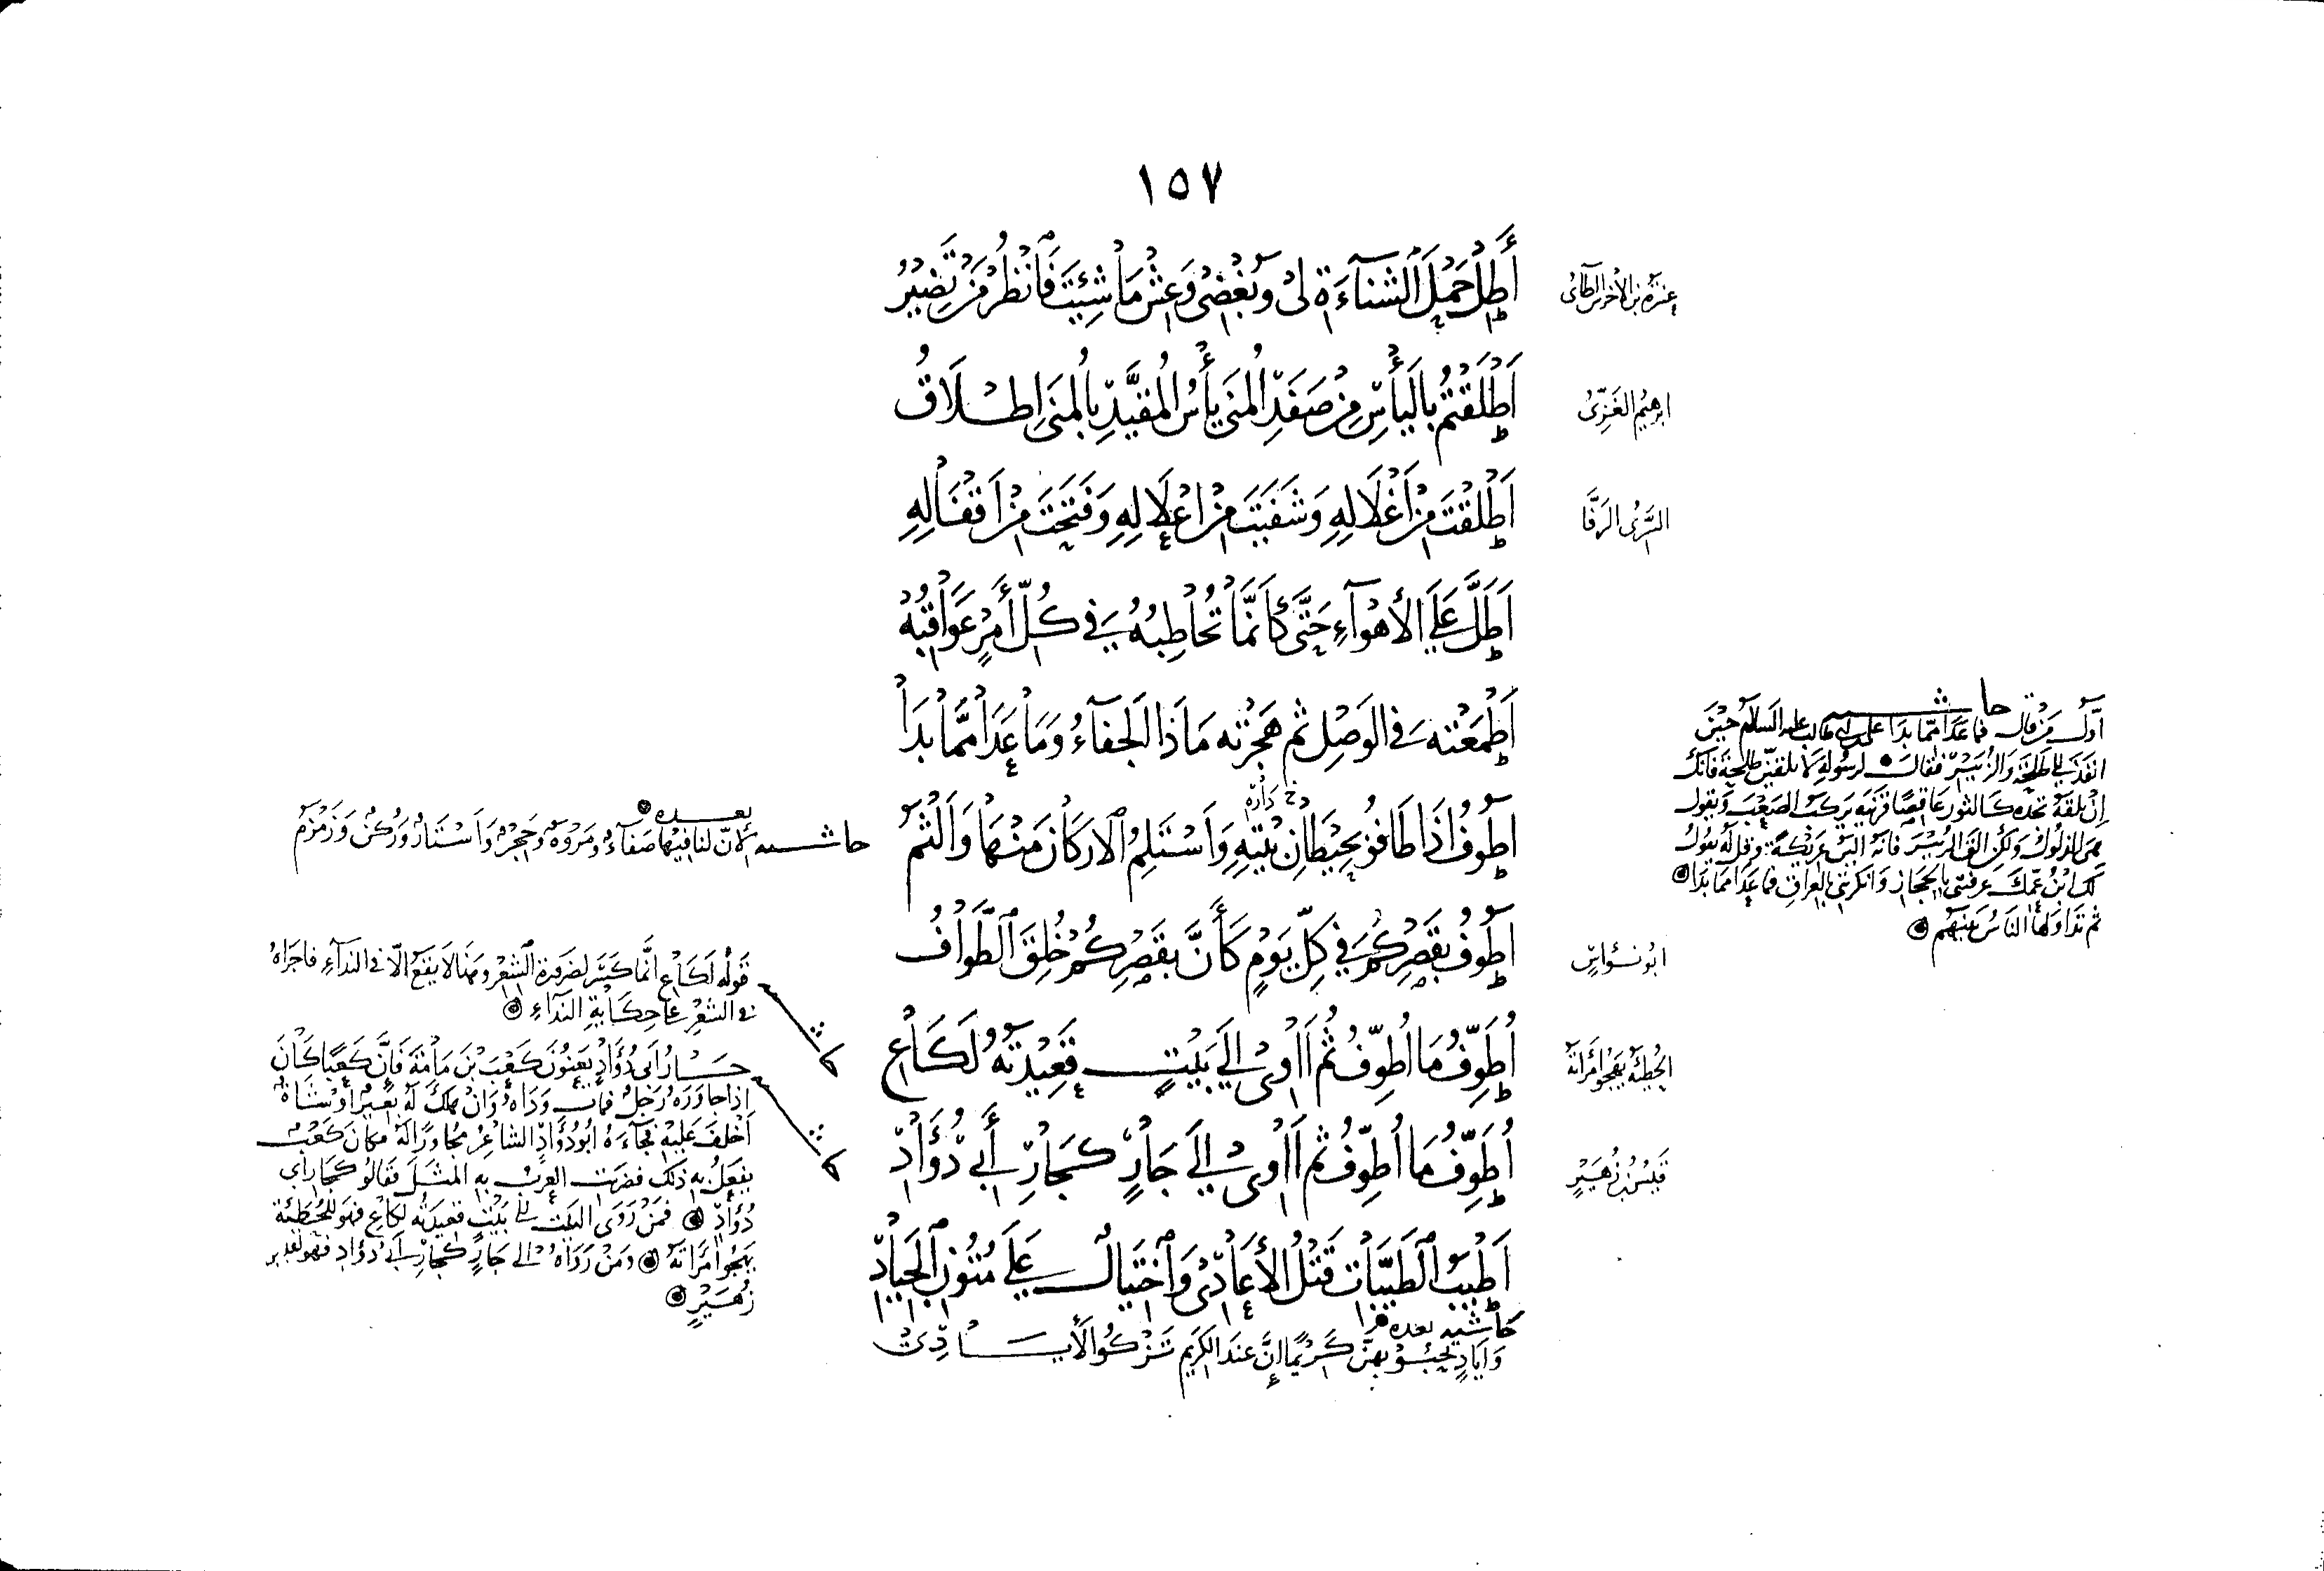 ١٥٧
أَطِلْ حَمْلَ الشَّنَآءَةِ لِىْ وَبُغْضِىْ وَعِشْ مَا شِئِتَ فَانْظُرْ مَنْ تَضِيْرُ
عنترة بن الأخرس الطائى
اَطْلَقْتُمُ بِاليَأْسِ مِنْ صَفَدِ المُنَى يَأْسُ المُقَيَّدِ بِالمُنَى اِطْلَاقُ
ابرهيم الغَزِّىُّ
اَطْلَقْتَ مِنْ اَغْلَالِهِ وَشَفَيْتَ مِنْ اعْلَالِهِ وَفَتَحْتَ مِنْ اَقْفَالِهِ
السَّرِىُّ الرَفَّا
اَطَلَّ عَلَى الأَهْوَآءِ حَتَّى كَأَنَّمَا تُخَاطِبُهُ فِى كُلِّ أَمْرٍ عَوَاقِبُهْ
اَطْمَعْتَهُ فى الوَصْلِ ثم هَجَرْتَه مَاذَا الجَفَآءُ وَمَا عَدَا مِمَّا بَدَا
حاشيه
اَوّل من قال فما عَدَا مِمّا بَدَا على بن ابى طالب عليه السلام حِيْنَ
انفَذَ الى طلحَةَ وَالزُبَيْرِ فقالَ لرسُولِهِ لا تلقَيَنَّ طلحَةَ فانّكَ
اِنْ تلقَهُ تجدْه كَالثورِ عَاقِصًا قرنَهُ يركَبُ الصَعْبَ وَيقول
هوَ الذلُولُ وَلكِنِ القَ الزُبَيْرَ فانّه اليَنُ عَرِيْكَةً وَقل لهُ يقُولُ
لكَ ابْنُ عَمِّكَ عَرفتَنِى بالحِجَازِ وَانكرتَنِى بالعِراقِ فما عَدَا مِمّا بَدَا
ثم تَدَاوَلهَا النّاسُ عَنْهُم
اَطُوفُ اذَا طَافُوْ بِحِيْطَانِ بَيْتِهِ وَاَسْتَلِمُ الاَرْكَانَ مِنْهَا وَاَلْثِمُ
خ دَارِهِ
حاشيه بعده
لأنّ لنا فيْهَا صَفَآءٌ ومَرْوَةٌ وَحِجْرٌ وَاَسْتَارٌ وَرُكنٌ وَزَمْزَمُ
اَطُوفُ بِقَصْرِكُم فِى كُلِّ يَوْمٍ كَأَنَّ بِقَصْرِكُمْ خُلِقَ الطَّوَافُ
ابُو نُوَاسٍ
اُطَوِّفُ مَا اُطَوِّفُ ثُم اَاوِىْ الى بَيْتٍ قَعِيْدَتُهُ لَكَاعِ
الحُطَيئة يَهْجُو امْرَأتَهُ
قَولُه لَكَاعِ انَّما كَسَرَ لضرورة الشِّعْرِ وَهذا لَا يَقَع الّا فى النِدَآءِ فاجرَاهُ
فى الشِعْرِ على حِكَايَةِ النِدَآءِ
اُطَوِّفُ مَا اُطَوِّفُ ثم اَاوِىْ الى جَارٍ كَجَارِ أَبِى دُوَادِ
قَيْسُ بْن زُهَيْرٍ
جَارُ ابَى دُوَادٍ يَعنُونَ كَعْبَ بْنَ مَامَةَ فَاِنَّ كَعبًا كَانَ
اذا جاوَرَهُ رَجُلٌ فمات وَدَاهُ وَانْ هلكَ لَهُ بَعِيْرٌ اوْ شَاةٌ
اَخلَفَ عَلَيْهِ فجآءَهُ ابُو دُوَادٍ الشاعِرُ مجَاوِرًا لهُ فكانَ كَعْبٌ
يَفعَلُ بِهِ ذلكَ فضرَبَتِ العَربُ بِهِ المَثَلَ فقالُو كجَارِ ابى
دُوَادٍ فمَنْ رَوَى البَيْتَ الى بَيْتٍ قعيدَتُه لكاعِ فهوَ للحُطَيْئَة
يَهجُو امْرَأتَهُ وَمَنْ رَوَاهُ الى جَارٍ كجَارِ ابى دُوَادِ فهو لقيس بن
زُهَيْرٍ
اَطْيَبُ الطَّيِّبَاتِ قَتْلُ الأَعَادِىْ وَاخْتِيَالٌ عَلَى مُتُونِ الجِيَادِ
حاشيه بعده
وَاَيَادٍ يَحْبُوْ بِهنَّ كَرِيْمًا اِنَّ عِندَ الكَرِيْمِ تَزْكُوا الأَيَادِىْ